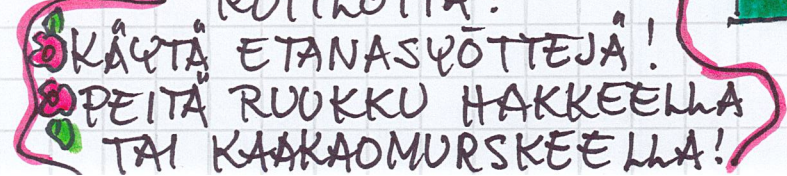 KÄYTÄ ETANASYÖTTEJÄ!
PEITÄ RUUKKU HAKKEELLA
TAI KAAKAOMURSKEELLA!